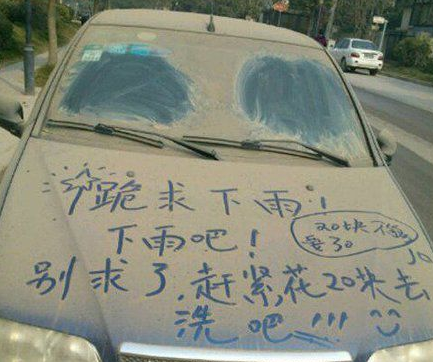 跪求下雨!
下雨吧!
20块不值
别求了,赶紧,花20块去
洗吧!!!